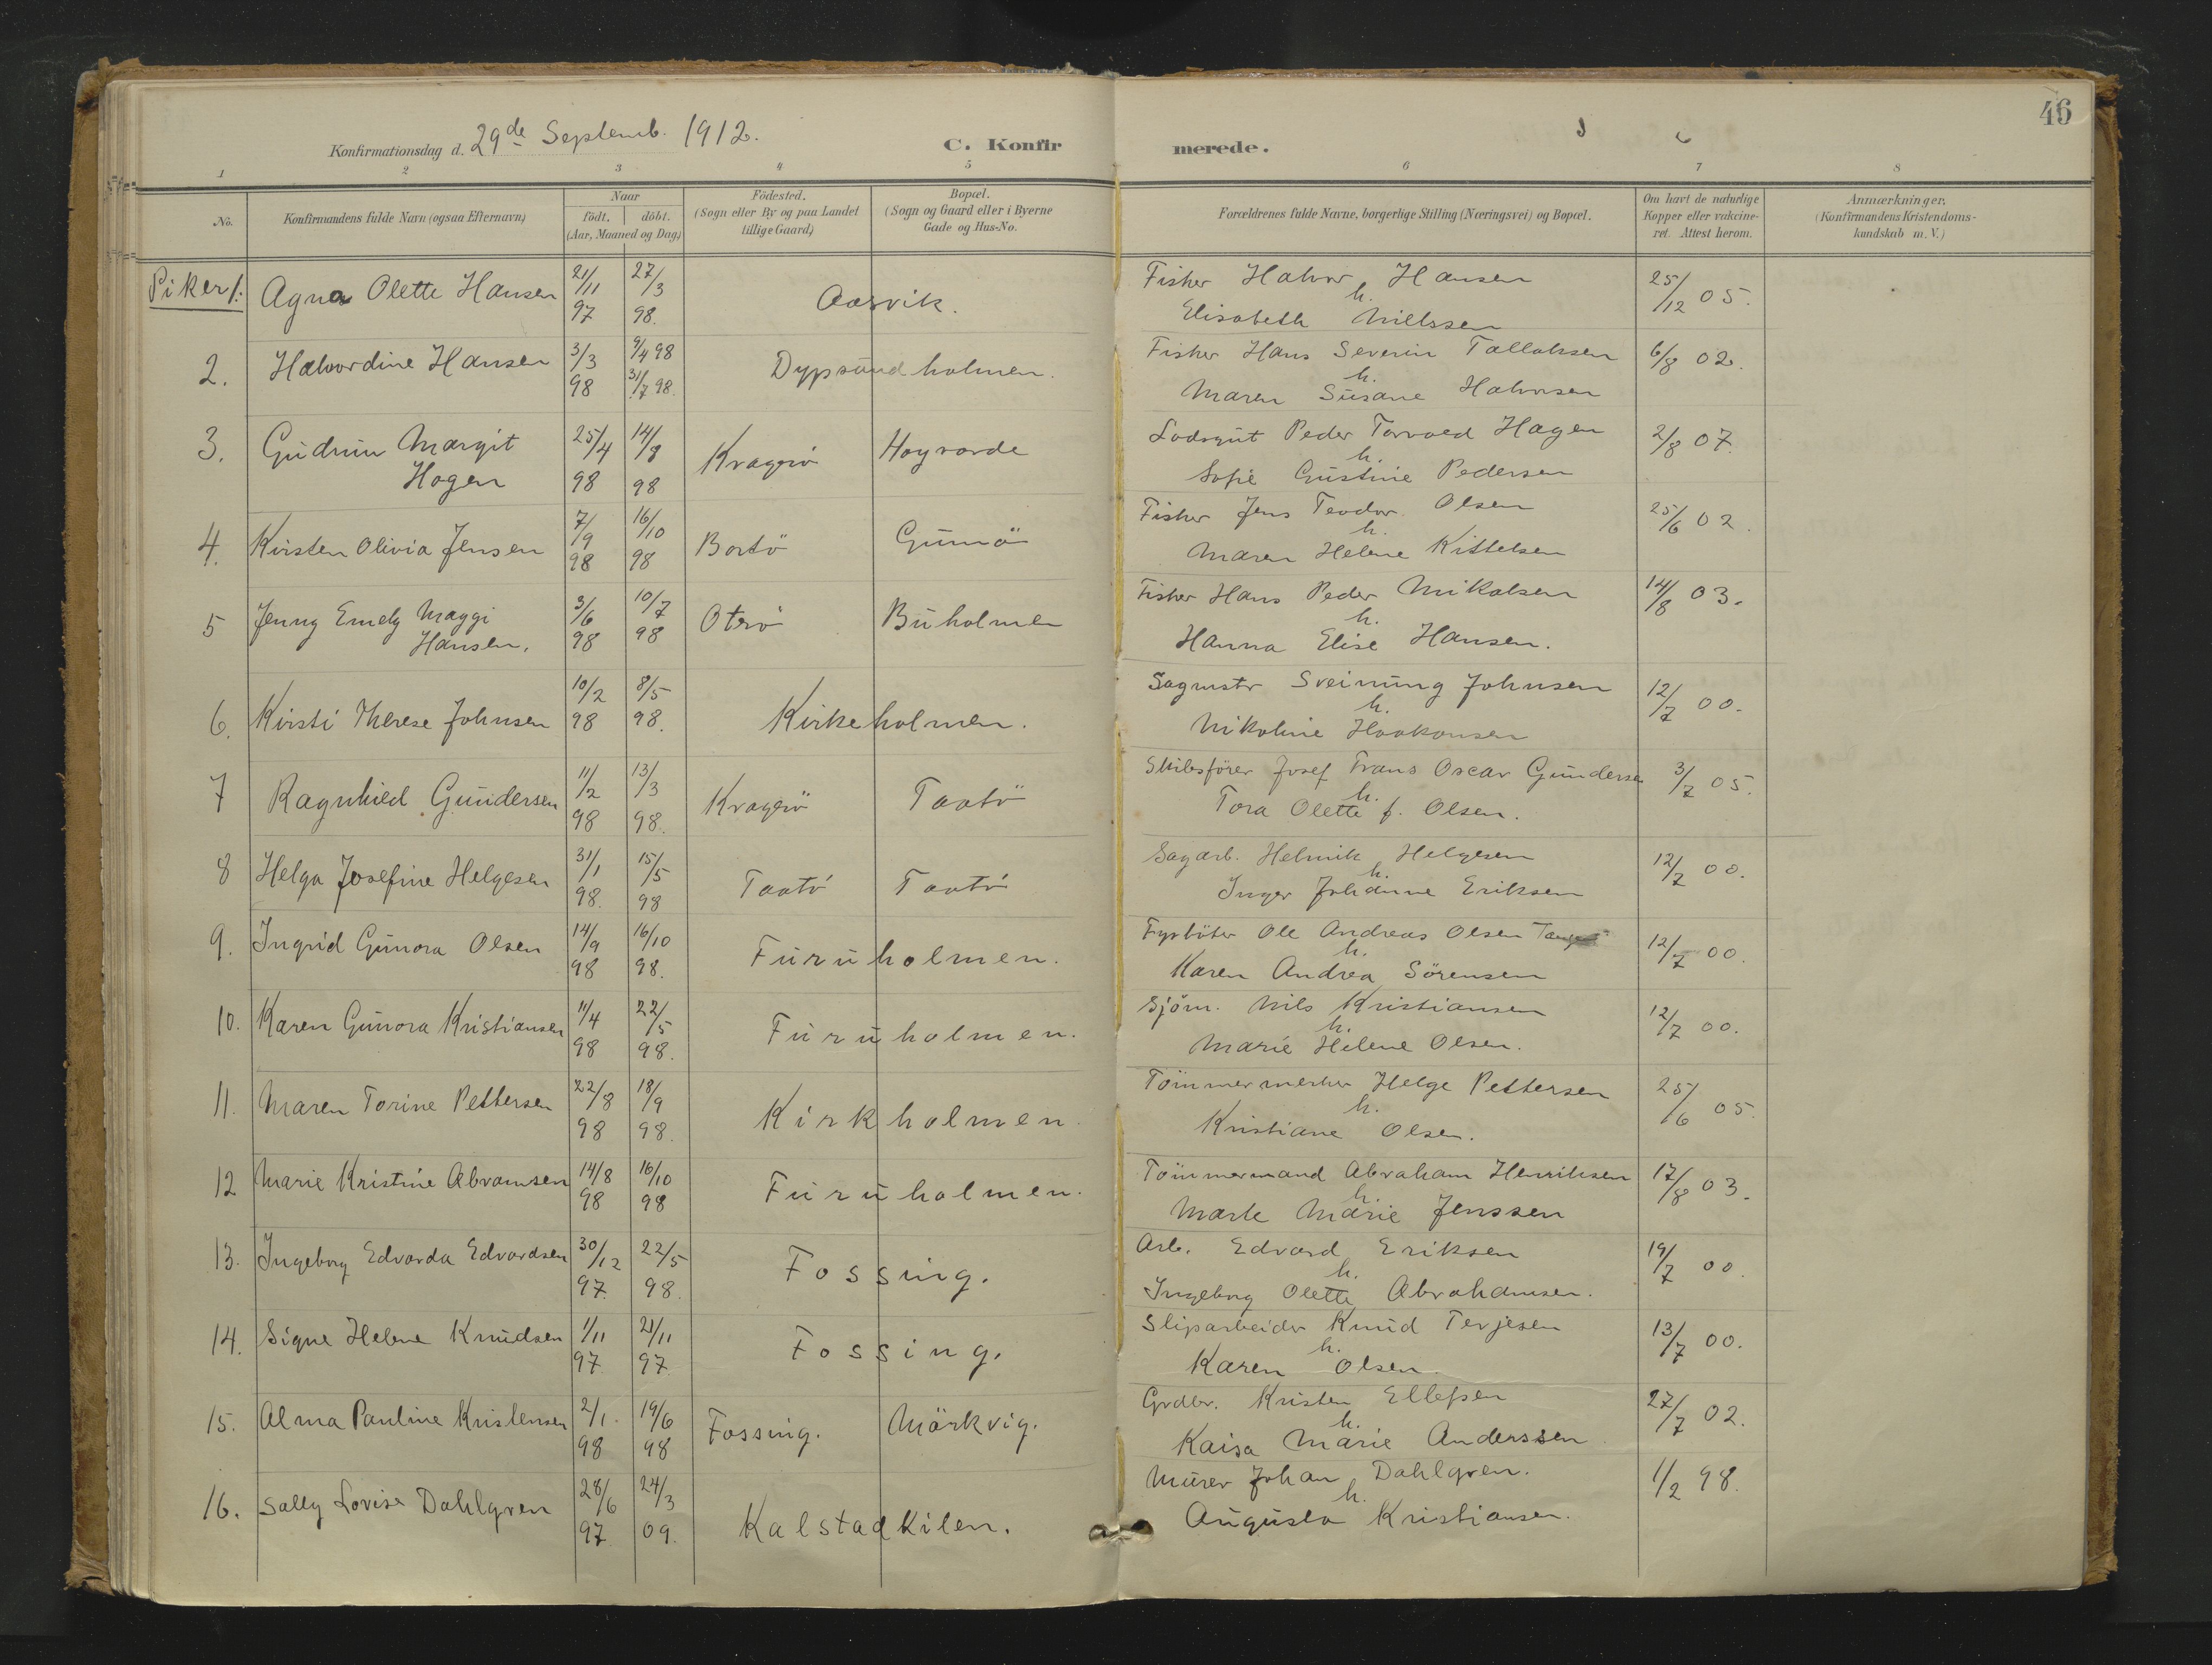 46
Konfirmationsdag d. 29de Septemb. 1912.
C. Konfirmerede.
1 2 3 4 5 6 7 8
No.
Konfirmandens fulde Navn (ogsaa Efternavn)
Naar
födt. döbt.
(Aar, Maaned og Dag)
Födested.
(Sogn eller By og paa Landet
tillige Gaard)
Bopæl.
(Sogn og Gaard eller i Byerne
Gade og Hus-No.
Forældrenes fulde Navne, borgerlige Stilling (Næringsvei) og Bopæl.
Om havt de naturlige
Kopper eller vakcine-
ret. Attest herom.
Anmærkninger.
(Konfirmandens Kristendoms-
kundskab m. V.)
Piker 1. Agna Olette Hansen 21/11 97 27/3 98. Aasvik. Fisker Halvor Hansen
h.
Elisabeth Nillssen 25/12 05.
2. Halvordine Hansen 3/3 98 9/4 98 31/7 98. Dypsundholmen. Fisker Hans Severin Tallaksen
h.
Maren Susane Halvorsen 6/8 02.
3. Gudrun Margit
Hagen 25/4 98 14/8 98 Kragerö Høyvarde Lodsgut Peder Torvald Hagen
h.
Sofie Gustine Pedersen 2/8 07.
4. Kirsten Olivia Jensen 7/9 98 16/10 98 Bortö Gumö Fisker Jens Teodor Olsen
h.
Maren Helene Kittelsen 25/6 02.
5 Jenny Emely Maggi
Hansen. 3/6 98 10/7 98 Oterö Buholmen Fisker Hans Peder Mikalsen
h.
Hanna Elise Hansen. 14/8 03.
6. Kirsti Therese Johnsen 10/2 98 8/5 98. Kirkeholmen. Sagmstr Sveinung Johnsen
h.
Nikoline Haakonsen 12/7 00.
7 Ragnhild Gundersen 11/2 98 13/3 98. Kragerö Taatö Skibsförer Josef Frans Oscar Gundersen
h.
Tora Olette f. Olsen. 3/7 05.
8 Helga Josefine Helgesen 31/1 98. 15/5 98 Taatö Taatö Sagarb. Helmik Helgesen
h.
Inger Johanne Eriksen 12/7 00.
9. Ingrid Gunora Olsen 14/9 98 16/10 98. Furuholmen. Fyrböter Ole Andreas Olsen
h.
Karen Andrea Sörensen 12/7 00.
10. Karen Gunora Kristiansen 11/4 98 22/5 98. Furuholmen. Sjöm. Nils Kristiansen
h.
Marie Helene Olsen. 12/7 00.
11. Maren Torine Pettersen 22/8 98 18/9 98. Kirkholmen. Tömmermerker Helge Pettersen
h.
Kristiane Olsen. 25/6 05.
12 Marie Kristine Abramsen 14/8 98 16/10 98 Furuholmen. Tömmermand Abraham Henriksen
h.
Marte Marie Jenssen 17/8 03.
13. Ingeborg Edvarda Edvardsen 30/12 97. 22/5 98. Fossing. Arb. Edvard Eriksen
h.
Ingeborg Olette Abrahamsen. 19/7 00.
14. Signe Helene Knudsen 1/11 97. 21/11 97. Fossing. Sliparbeider Knud Terjesen
h.
Karen Olsen. 13/7 00.
15. Alma Pauline Kristensen 2/1. 98 19/6 98 Fossing. Mörkvig. Grdbr. Kristen Ellefsen
h.
Kaisa Marie Anderssen 27/7 02.
16. Sally Lovise Dahlgren 28/6 97 24/3 09. Kalstadkilen. Murer Johan Dahlgren.
h.
Augusta Kristiansen. 1/2 98.